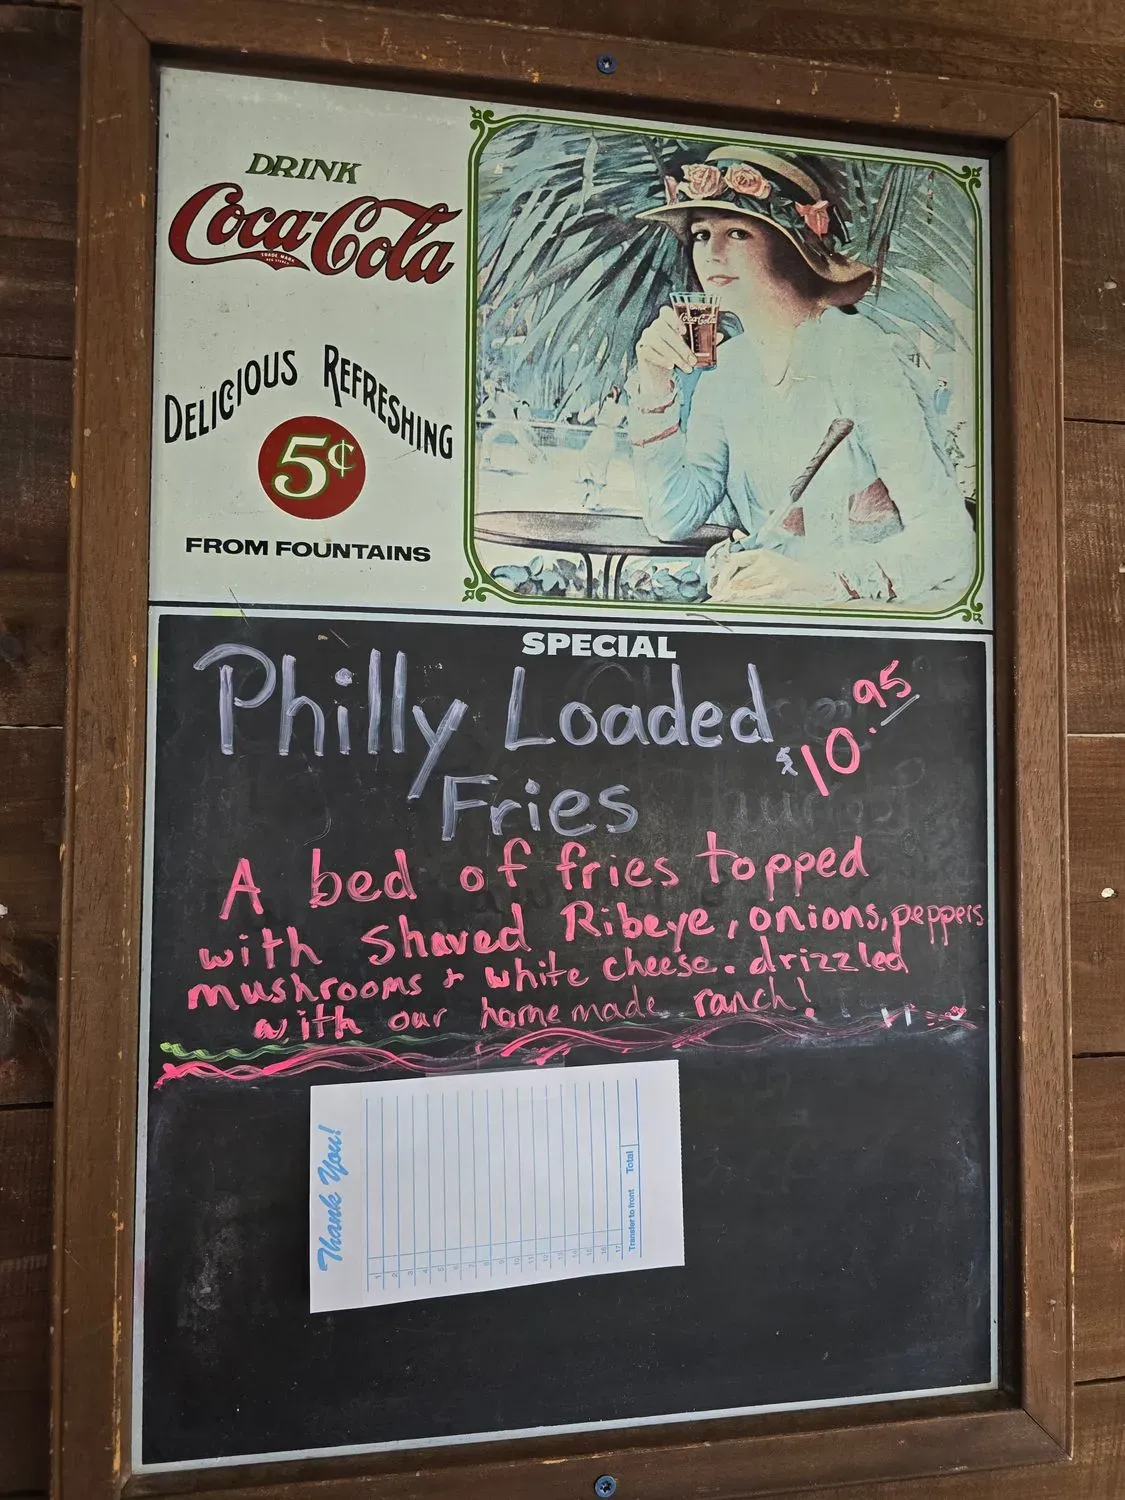 DRINK
Coca-Cola
TRADE MARK
DELICIOUS REFRESHING
5¢
FROM FOUNTAINS
Coca-Cola
SPECIAL
Philly Loaded
Fries
$10.95
A bed of fries topped
with Shaved Ribeye, onions, peppers
mushrooms + white cheese. drizzled
with our homemade ranch!
Thank You!
1
2
3
4
5
6
7
8
9
10
11
12
13
14
15
16
17
Transfer to front Total